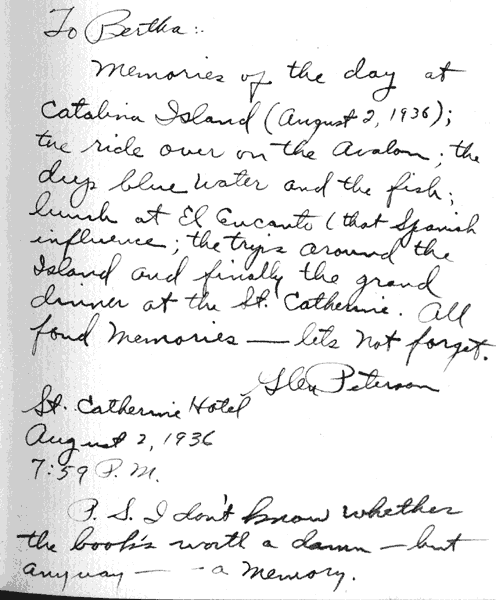 To Bertha:
Memories of the day at
Catalina Island (August 2, 1936);
the ride over on the Avalon; the
deep blue water and the fish;
lunch at El Encanto (that Spanish
influence; the trips around the
Island and finally the grand
dinner at the St. Catherine. All
fond memories — lets not forget.
Glen Peterson
St. Catherine Hotel
August 2, 1936
7:59 P.M.
P.S. I don't know whether
the book's worth a damn — but
anyway — - a memory.